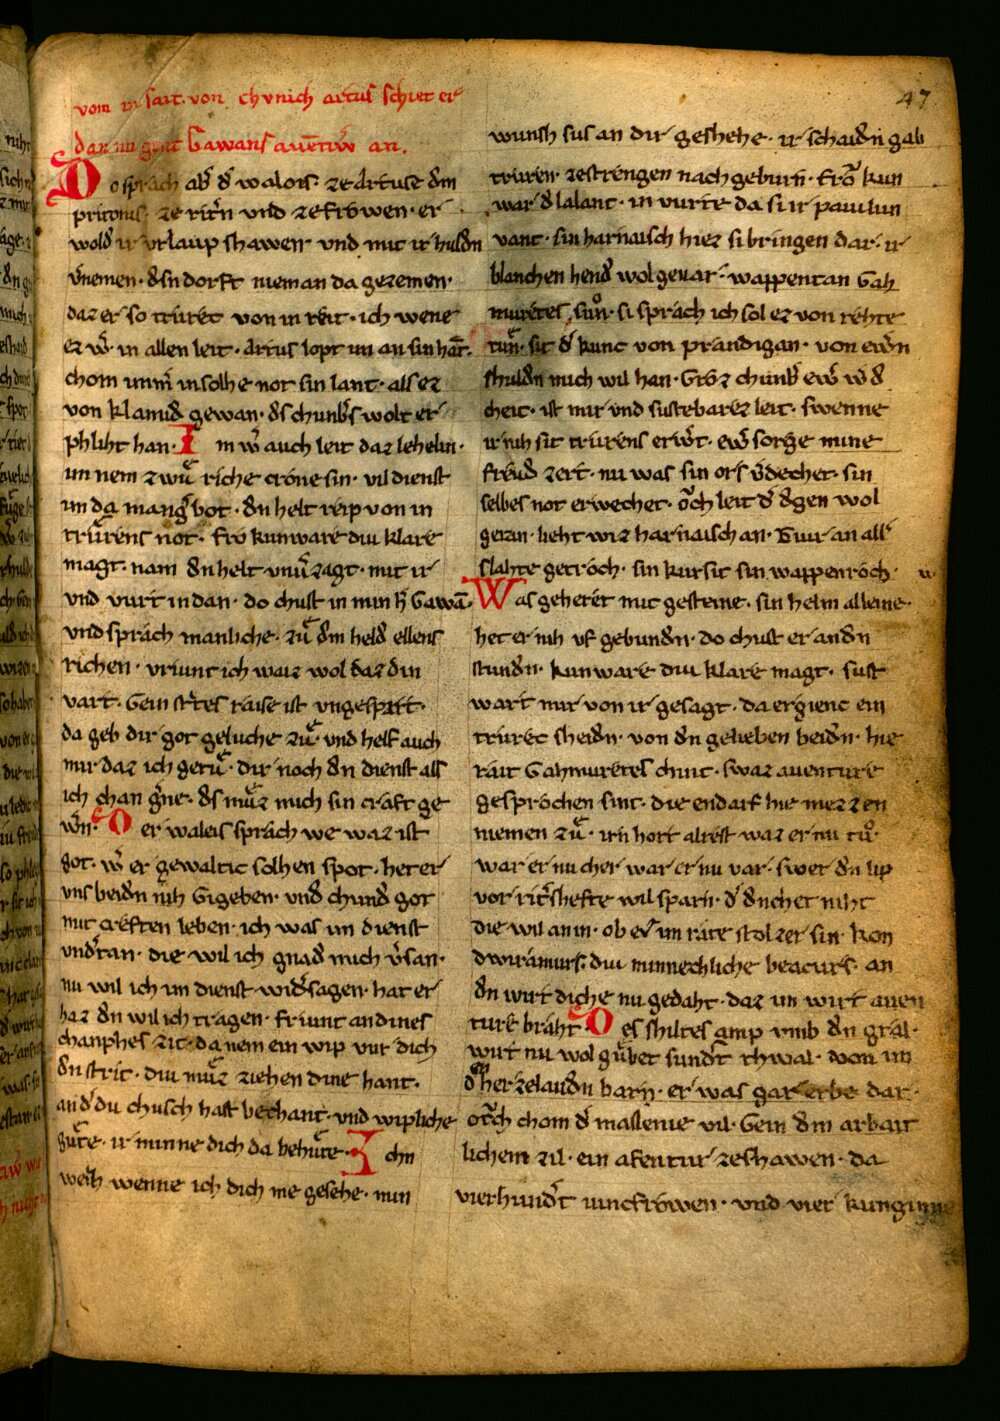 47
vom in sait von chunich artus schiet er
dar nu gent Gawans auentiur an.
Do sprach ab̄ d̓ walois· ze Artuse dem
pritonis· ze rit̓n vnd ze frowen· er
wold ir vrlaup shawen vnd mit ir hulden
v̓nemen· d̓s n dorft nieman da gezemen·
daz er so truret von in reit· ich wene
ez w̓· in allen leit· Artus lopt im an sin hāt·
chom imm̓ in solhe not sin lant· als ez
von klamid̓ gewan· d̓s chunb̓s wolt er
phliht han· Im w̓ auch leit daz lehelin·
im nem zwů riche crone sin· vil dienst
im da mang̓ bot· d̓n helt reip von in
trůrens not· frō kunware diu klare
magt· nam d̓n helt vnu̓zagt· mit ir
vnd vurt in dan· do chust in min h̓ Gawā·
vnd sprach manliche· zů d̓m held ellens
richen· vriunt ich waiz wol daz din
vart· Gein strites raise ist vngespart·
da geb dir got geluche zů· vnd helf auch
mir daz ich getů· dir noch d̓n dienst als
ich chan g̓ne· d̓s můz mich sin craft ge
w̓n· Der waleis sprach we waz ist
got· w̓ er gewaltic solhen spot· het er
vns beid̓n niht Gigeben· vnd̓ chund got
mit creften leben· ich was im dienst
vnd̓tan· die wil ich gnad̓ mich v̓san·
nu wil ich im dienst wid̓sagen· hat er
haz d̓n wil ich tragen· friunt an dines
chanphes zit· da nem ein wip vur dich
d̓n strit· diu můz ziehen dine hant·
an d̓ du chusch hast bechant· vnd wipliche
gůte· ir minne dich da behůte· Ichn
weiz wenne ich dich me gesehe· min
wunsh sus an dir geshehe· ir schaid̓n gab
truren· ze strengen nachgeburn· frō kun
war d̓ lalant· in vurte da si ir pauilun
vant· sin harnaisch hiez si bringen dar· ir
blanchen hend̓ wol geuar· wappentan Gah
muretes sůn· si sprach ich sol ez von rehte
tůn· sit d̓ kunc von prandigan· von ew̓n
shuld̓n mich wil han· Groz chunb̓ ew̓ w̓d̓
cheit· ist mir vnd suftebarez leit· swenne
ir nih sit trurens erw̓t· ew̓ sorge mine
freud̓ zert· nu was sin ors v̓decher· sin
selbes not erwecher· och leit d̓ d̓gen wol
getan· lieht wiz harnaisch an· Tiur an all̓
slahte getroch· sin kursit sin wappenroch·
Was geheret mit gesteine· sin helm alleine·
het er nih vf gebund̓n· do chust er an d̓n
stund̓n· kunware diu klare magt· sust
wart mir von ir gesagt· da ergienc ein
truret sheid̓n· von d̓n gelieben beid̓n· hie
rait Gahmuretes chint· swaz auenture
gesprochen sint· die endarf hie mezzen
niemen zů· irn hort alrest waz er nu tů·
war er nu cher war er nu var· swer d̓n lip
vor rit̓shefte wil sparn· d̓ d̓nchet niht
die wil an in· ob ez̓ im rate stolzer sin· kon
dwiramurs· diu minnechliche beacurs· an
d̓n wirt diche nu gedaht· daz im wirt auen
ture braht· Des shiltes amp vmb d̓n gral·
wirt nu wol gůbet sund̓r thwal· von im
d̓n herzelaud̓n barn· er was gar erbe dar·
Och chom d̓ massenie vil· Gein d̓m arbait
lichem zil· ein afentiur ze shawen· da
vierhund̓t iuncfrowen· vnd vier kunginne